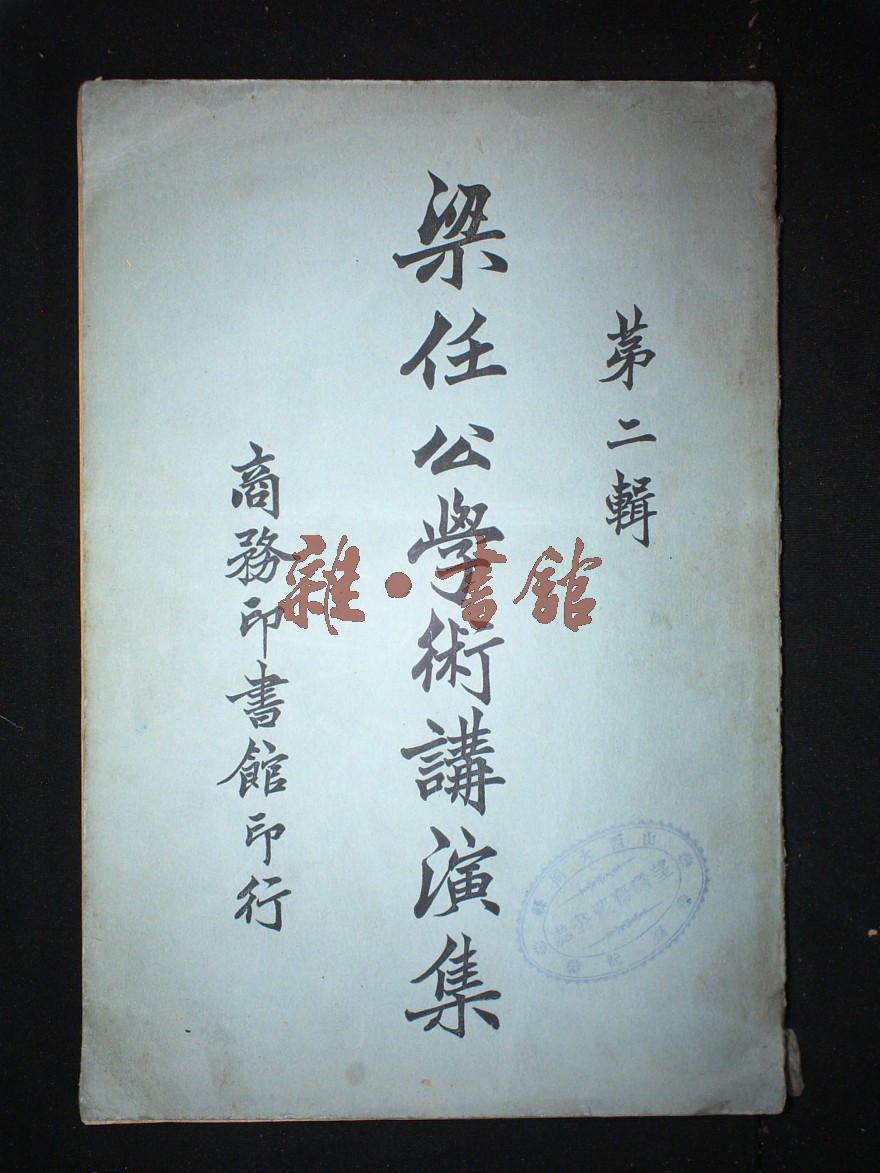 第二輯
梁任公學術講演集
商務印書館印行
雜·書館